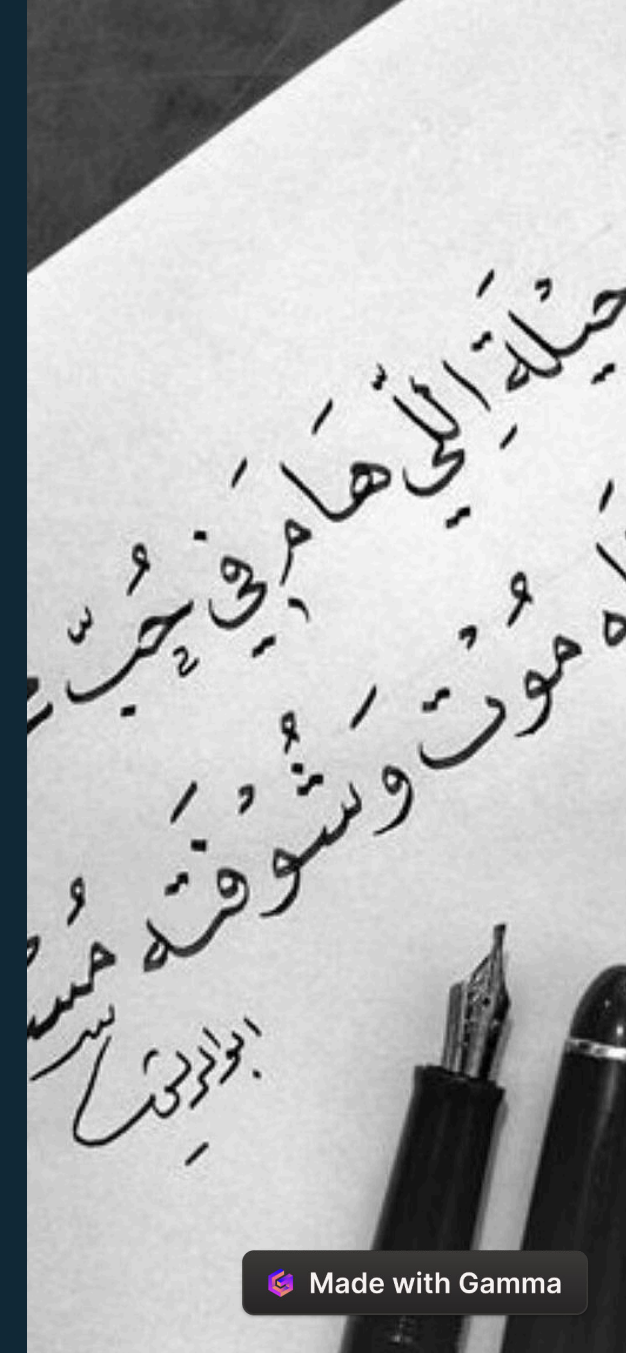 حيْلَةِ اللّي هَامِ فِي حُبّ
مُوْت وَشُوْفَتَه
Made with Gamma